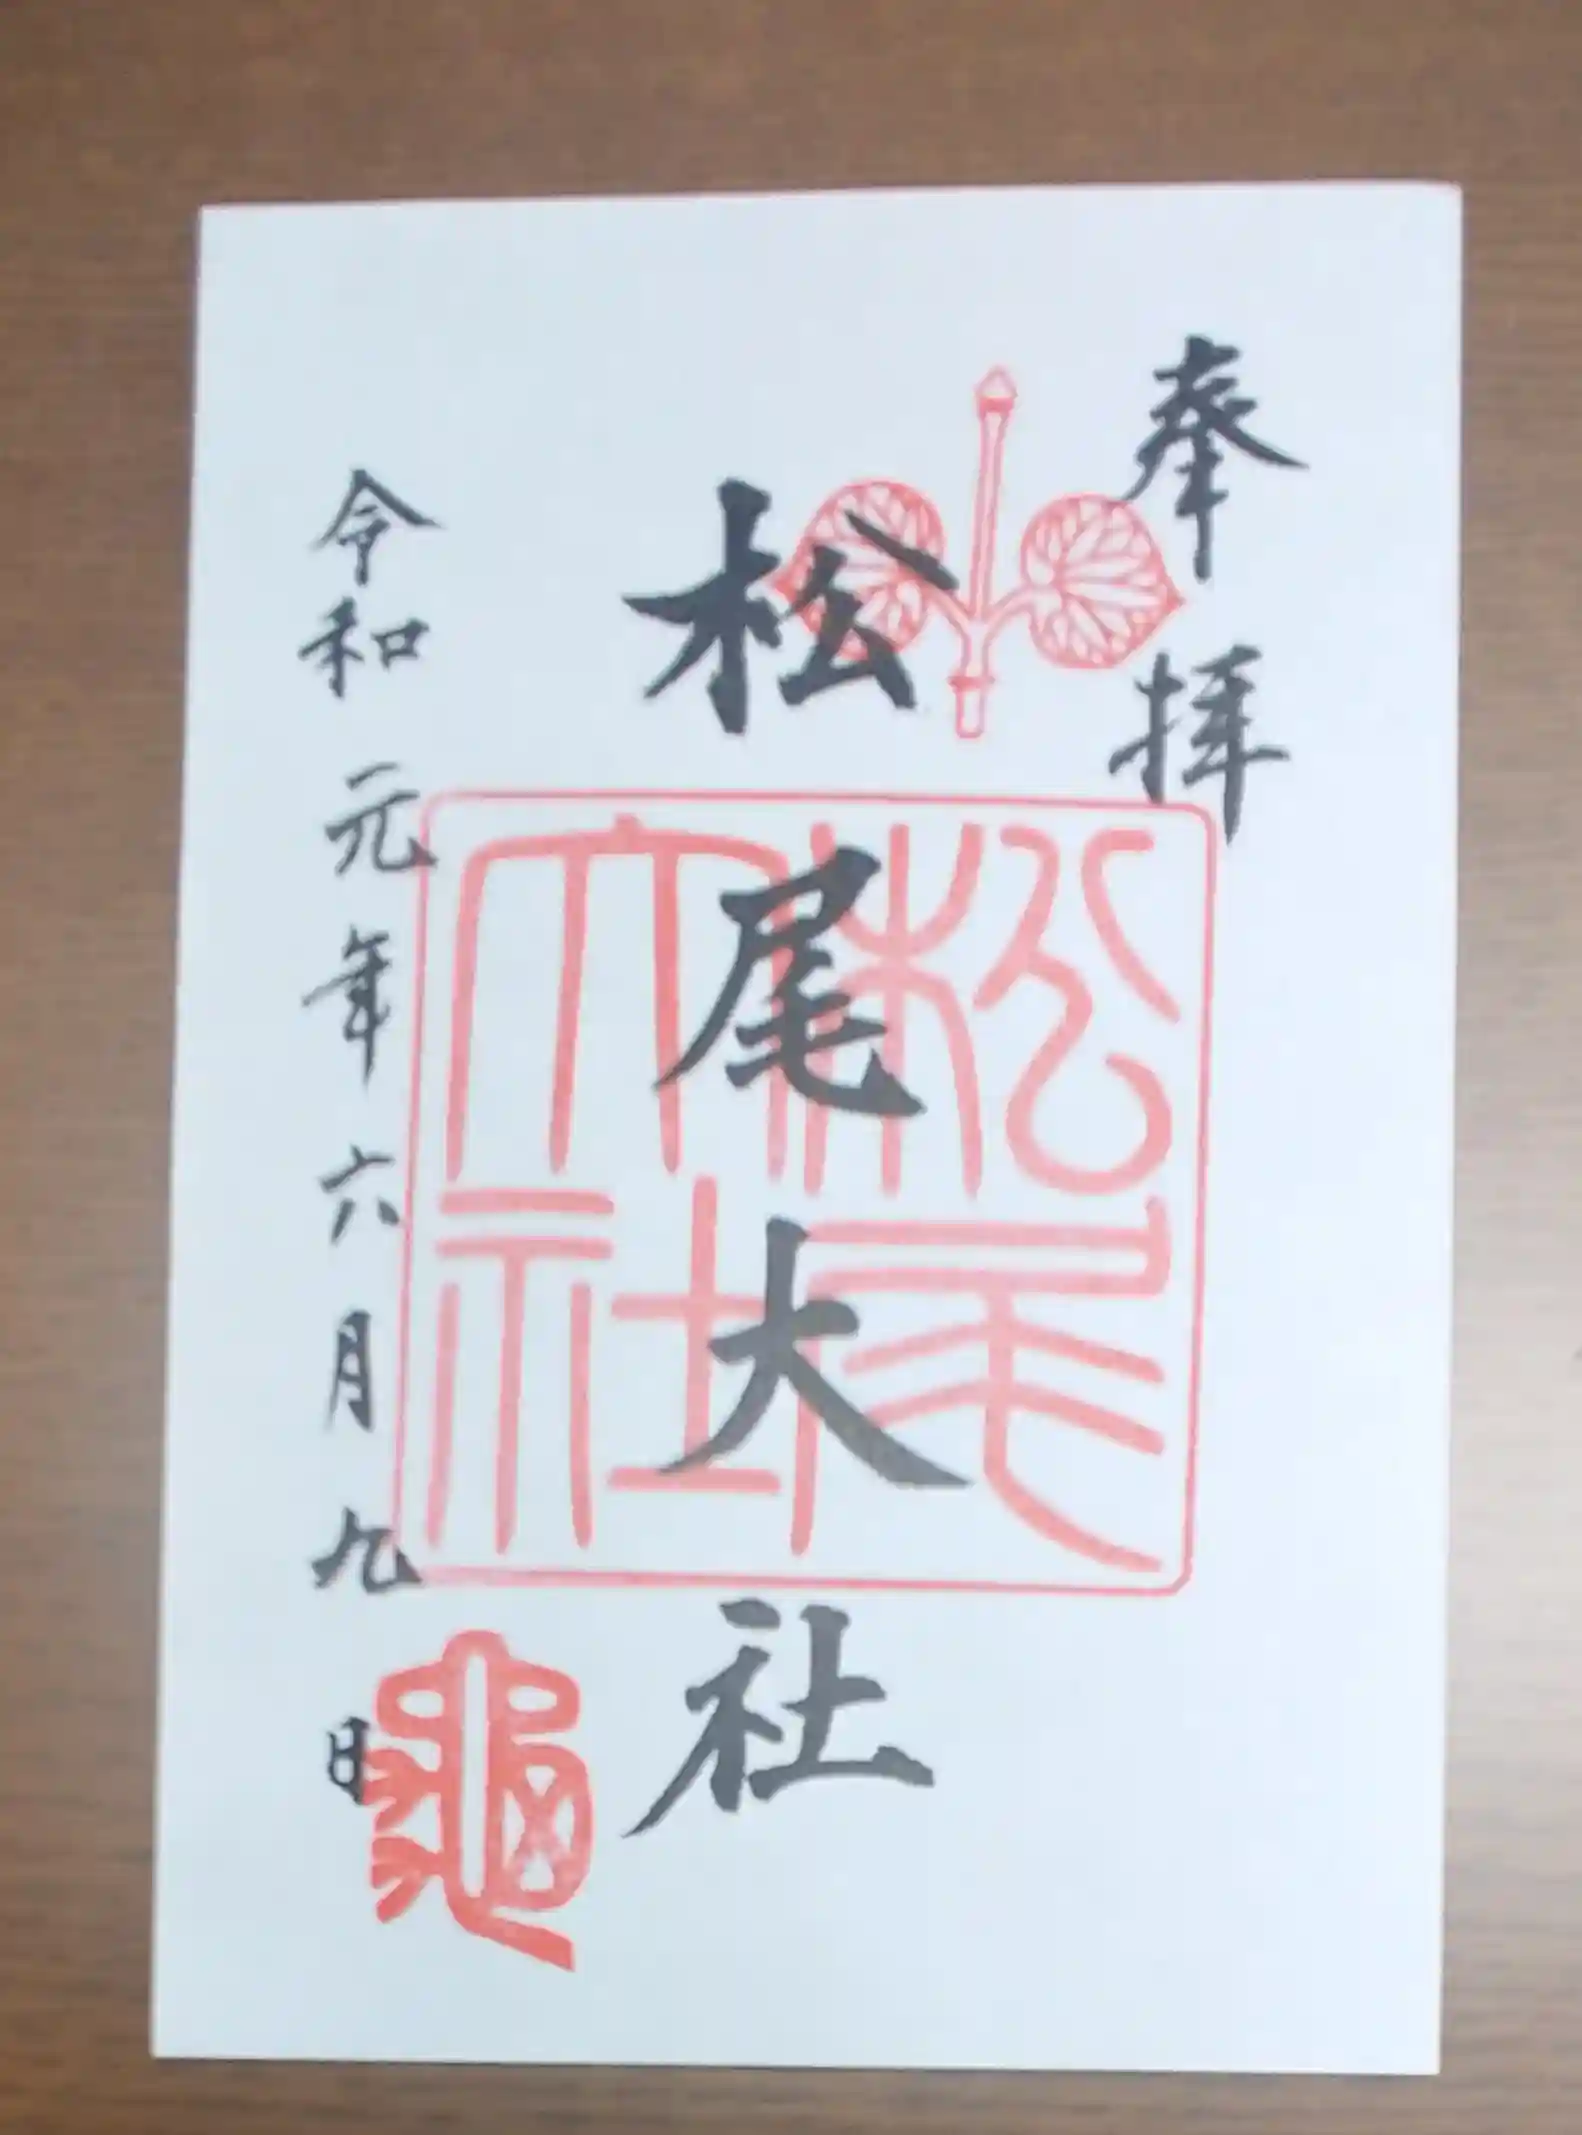 奉拝
松尾大社
松尾大社
令和元年六月九日
龜